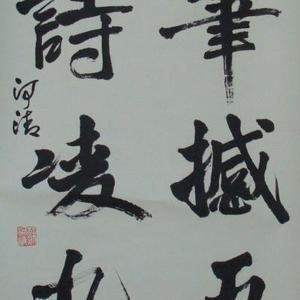 筆撼五
詩凌九
河清